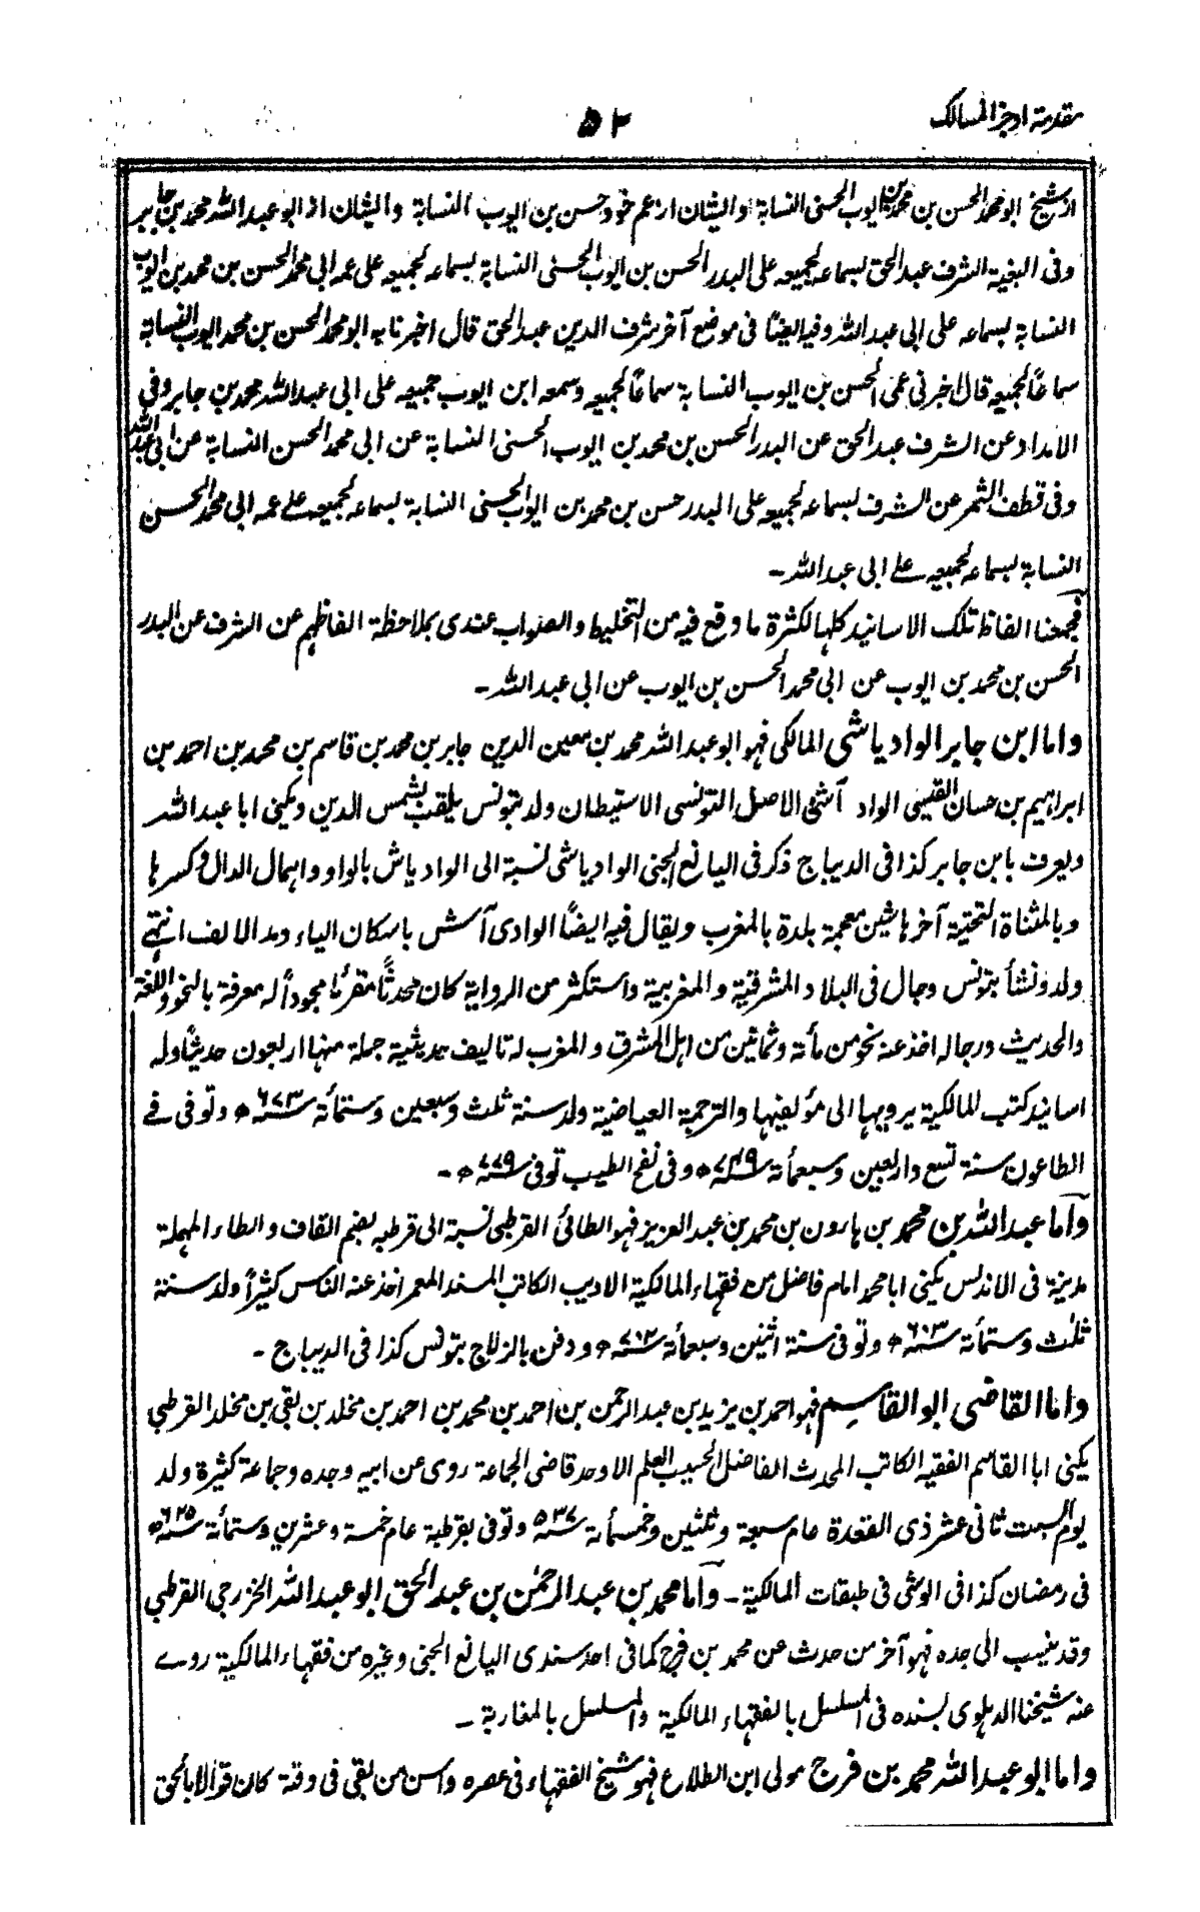 مقدمة اوجز المسالك
٥٢
از شيخ ابو محمد الحسن بن محمد بن ايوب الحسنى النسابة والشان از عم خود حسن بن ايوب النسابة والشان از ابو عبد الله محمد بن جابر
وفى البغية الشرف عبد الحق بسماعه لجميعه على البدر الحسن بن ايوب الحسنى النسابة بسماعه لجميعه على عمه ابى محمد الحسن بن محمد بن ايوب
النسابة بسماعه على ابى عبد الله وفيه ايضًا فى موضع آخر شرف الدين عبد الحق قال اخبرنا به ابو محمد الحسن بن محمد ايوب النسابة
سماعًا لجميعه قال اخبرنى عمى الحسن بن ايوب النسابة سماعًا لجميعه وسمعه ابن ايوب جميعه على ابى عبد الله محمد بن جابر وفى
الامداد عن الشرف عبد الحق عن البدر الحسن بن محمد بن ايوب الحسنى النسابة عن ابى محمد الحسن النسابة عن ابى عبد الله
وفى قطف الثمر عن الشرف بسماعه لجميعه على البدر حسن بن محمد بن ايوب الحسنى النسابة بسماعه لجميعه على عمه ابى محمد الحسن
النسابة بسماعه لجميعه على ابى عبد الله ـ
فجمعنا الفاظ تلك الاسانيد كلها لكثرة ما وقع فيه من التخليط والصواب عندى بملاحظة الفاظهم عن الشرف عن البدر
الحسن بن محمد بن ايوب عن ابى محمد الحسن بن ايوب عن ابى عبد الله ـ
واما ابن جابر الوادياشى المالكى فهو ابو عبد الله محمد بن معين الدين جابر بن محمد بن قاسم بن محمد بن احمد بن
ابراهيم بن حسان القيسى الواد آشى الاصل التونسى الاستيطان ولد بتونس يلقب بشمس الدين ويكنى ابا عبد الله
ويعرف بابن جابر كذا فى الديباج ذكر فى اليانع الجنى الوادياشى نسبة الى الوادياش بالواو واهمال الدال وكسرها
وبالمثناة التحتية آخرها شين معجمة بلدة بالمغرب ويقال فيه ايضًا الوادى آشى باسكان الياء ومد الالف انتهى
ولد ونشأ بتونس وجال فى البلاد المشرقية والمغربية واستكثر من الرواية كان محدثًا مقرئًا مجودًا له معرفة بالنحو واللغة
والحديث ورجاله اخذ عنه نحو من مأة وثمانين من اهل المشرق والمغرب له تاليف حديثية جملة منها اربعون حديثًا وله
اسانيد كتب المالكية يرويها الى مؤلفيها والترجمة العياضية ولد سنة ثلث وسبعين وستمأة سنه ٦٧٣ ه وتوفى فى
الطاعون سنة تسع واربعين وسبعمأة سنه ٧٤٩ ه وفى نفح الطيب توفى سنه ٧٧٩ ه ـ
وآما عبد الله بن محمد بن هارون بن محمد بن عبد العزيز فهو الطائى القرطبى نسبة الى قرطبه بضم القاف والطاء المهملة
مدينة فى الاندلس يكنى ابا محمد امام فاضل من فقهاء المالكية الاديب الكاتب المسند المعمر اخذ عنه الناس كثيرًا ولد سنة
ثلاث وستمأة سنه ٦٠٣ ه وتوفى سنة اثنين وسبعمأة سنه ٧٠٢ ه ودفن بالزلاج بتونس كذا فى الديباج ـ
واما القاضى ابو القاسم فهو احمد بن يزيد بن عبد الرحمن بن احمد بن محمد بن احمد بن مخلد بن بقى بن مخلد القرطبى
يكنى ابا القاسم الفقيه الكاتب المحدث الفاضل الحسيب العلم الاوحد قاضى الجماعة روى عن ابيه وجده وجماعة كثيرة ولد
يوم السبت ثانى عشر ذى القعدة عام سبعة وثلثين وخمسمأة سنه ٥٣٧ وتوفى بقرطبة عام خمسة وعشرين وستمأة سنه ٦٢٥ ه
فى رمضان كذا فى الوشى فى طبقات المالكية ـ وآما محمد بن عبد الرحمٰن بن عبد الحق ابو عبد الله الخزرجى القرطبى
وقد ينسب الى جده فهو آخر من حدث عن محمد بن فرج كما فى احد سندى اليانع الجنى وغيره من فقهاء المالكية روى
عنه شيخنا الدهلوى بسنده فى المسلسل بالفقهاء المالكية والمسلسل بالمغاربة ـ
واما ابو عبد الله محمد بن فرج مولى ابن الطلاع فهو شيخ الفقهاء فى عصره واسن من بقى فى وقته كان قوالا بالحق